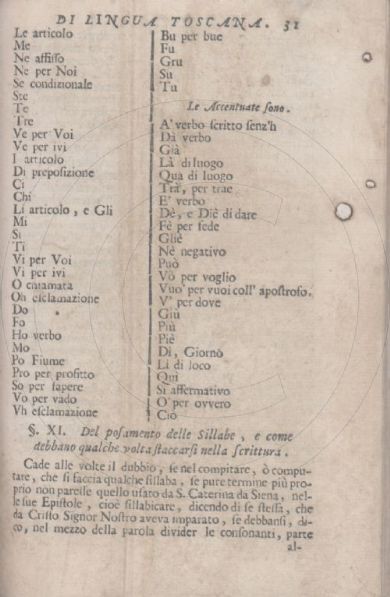 DI LINGUA TOSCANA. 31
Le articolo
Me
Ne affisso
Ne per Noi
Se condizionale
Ste
Te
Tre
Ve per Voi
Ve per ivi
I articolo
Di preposizione
Ci
Chi
Li articolo, e Gli
Mi
Si
Ti
Vi per Voi
Vi per ivi
O chiamata
Oh esclamazione
Do
Fo
Ho verbo
Mo
Po Fiume
Pro per profitto
So per sapere
Vo per vado
Vh esclamazione
Bu per bue
Fu
Gru
Su
Tu
Le Accentuate sono.
A' verbo scritto senz'h
Dà verbo
Già
Là di luogo
Qua di luogo
Trà, per trae
E' verbo
Dè, e Diè di dare
Fè per fede
Gliè
Nè negativo
Può
Vò per voglio
Vuo' per vuoi coll' apostrofo.
V' per dove
Giù
Più
Piè
Dì, Giorno
Lì di loco
Quì
Sì affermativo
O' per ovvero
Ciò
§. XI. Del posamento delle Sillabe, e come
debbano qualche volta staccarsi nella scrittura.
Cade alle volte il dubbio, se nel compitare, ò compu-
tare, che si faccia qualche sillaba, se pure termine più pro-
prio non paresse quello usato da S. Caterina da Siena, nel-
le sue Epistole, cioè sillabicare, dicendo di se stessa, che
da Cristo Signor Nostro aveva imparato, se debbansi, di-
co, nel mezzo della parola divider le consonanti, parte
al-